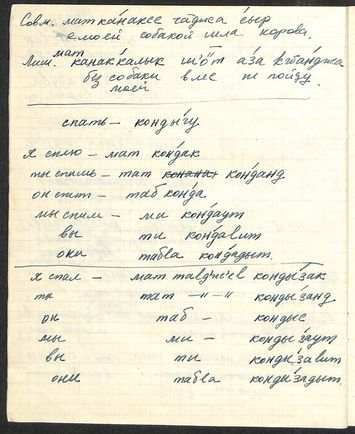 Совм. мат кана́ксе га́дмса сы́р
с моей собакой шла корова.
мат
Лиш. канакка́лык шо̄т а́за
без собаки в лес не пойду.
моей
спать – конды́гу
я сплю – мат ко́ндак
ты спишь – тат конданд
он спит – таб ко́нда
мы спим – ми ко́ндаут
вы ти ко́ндалит
они табла ко́ндадыт.
я спал – мат конды́зак
ты тат –"–" конды́занд
он таб – кондыс
мы ми – конды́заут
вы ти конды́залит
они табла конды́задыт